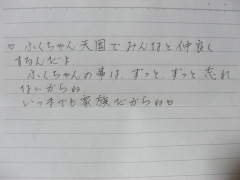 ふくちゃん天国でみんなと仲良く
するんだよ
ふくちゃんの事は、ずっと、ずっと忘れ
ないからね。
いつまでも家族だからね